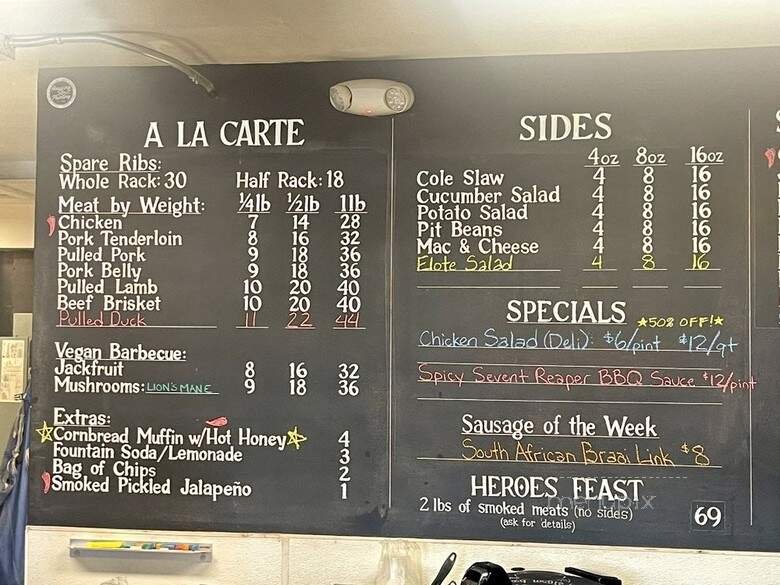 A LA CARTE
Spare Ribs:
Whole Rack: 30 Half Rack: 18
Meat by Weight: 1/4lb 1/2lb 1lb
Chicken 7 14 28
Pork Tenderloin 8 16 32
Pulled Pork 9 18 36
Pork Belly 9 18 36
Pulled Lamb 10 20 40
Beef Brisket 10 20 40
Pulled Duck 11 22 44
Vegan Barbecue:
Jackfruit 8 16 32
Mushrooms: LION'S MANE 9 18 36
Extras:
Cornbread Muffin w/Hot Honey 4
Fountain Soda/Lemonade 3
Bag of Chips 2
Smoked Pickled Jalapeño 1
SIDES
4oz 8oz 16oz
Cole Slaw 4 8 16
Cucumber Salad 4 8 16
Potato Salad 4 8 16
Pit Beans 4 8 16
Mac & Cheese 4 8 16
Elote Salad 4 8 16
SPECIALS ★50% OFF!★
Chicken Salad (Deli): $6/pint $12/qt
Spicy Sevent Reaper BBQ Sauce $12/pint
Sausage of the Week
South African Braai Link $8
HEROES FEAST
2 lbs of smoked meats (no sides) 69
(ask for details)
menupix